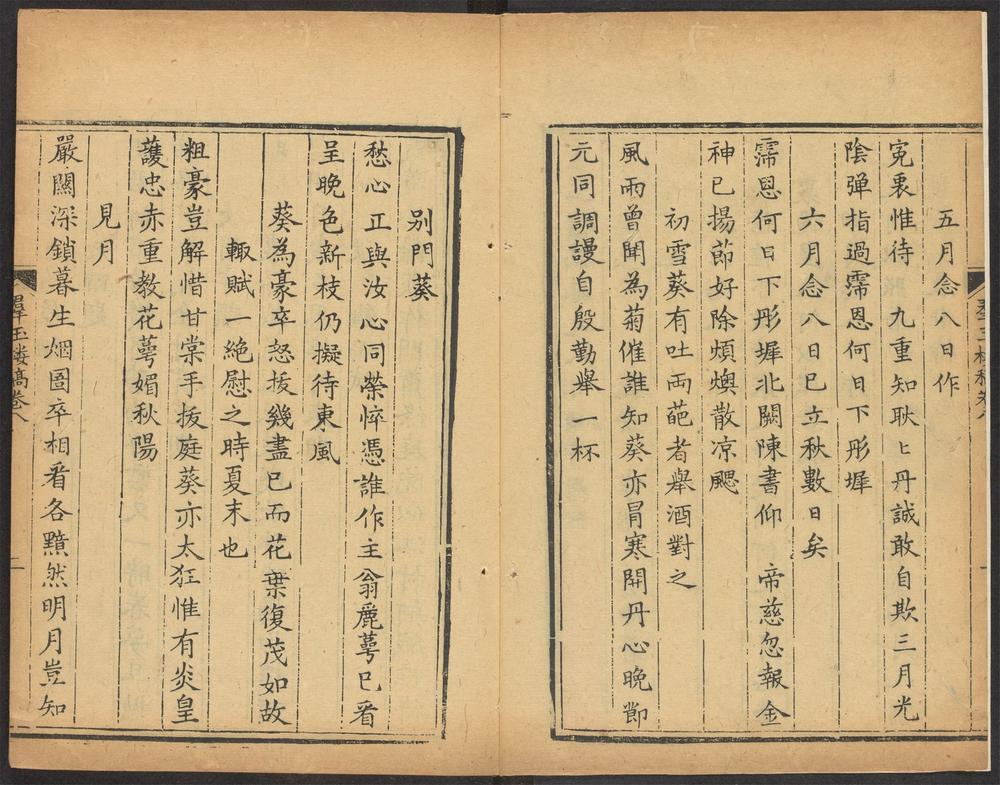 五月念八日作
寃裏惟待 九重知耿〻丹誠敢自欺三月光
陰彈指過霈恩何日下彤墀
六月念八日已立秋數日矣
霈恩何日下彤墀北闕陳書仰 帝慈忽報金
神已揚節好除煩燠散凉颸
初雪葵有吐兩葩者舉酒對之
風雨曾聞為菊催誰知葵亦冐寒開丹心晚節
元同調謾自殷勤舉一杯
别門葵
愁心正與汝心同榮悴憑誰作主翁麄萼已看
呈晚色新枝仍擬待東風
葵為豪卒怒拔幾盡已而花葉復茂如故
輙賦一絶慰之時夏末也
粗豪豈解惜甘棠手拔庭葵亦太狂惟有炎皇
䕶忠赤重教花萼媚秋陽
見月
嚴關深鎖暮生烟圄卒相看各黯然明月豈知
羣玉楼稿卷八
二